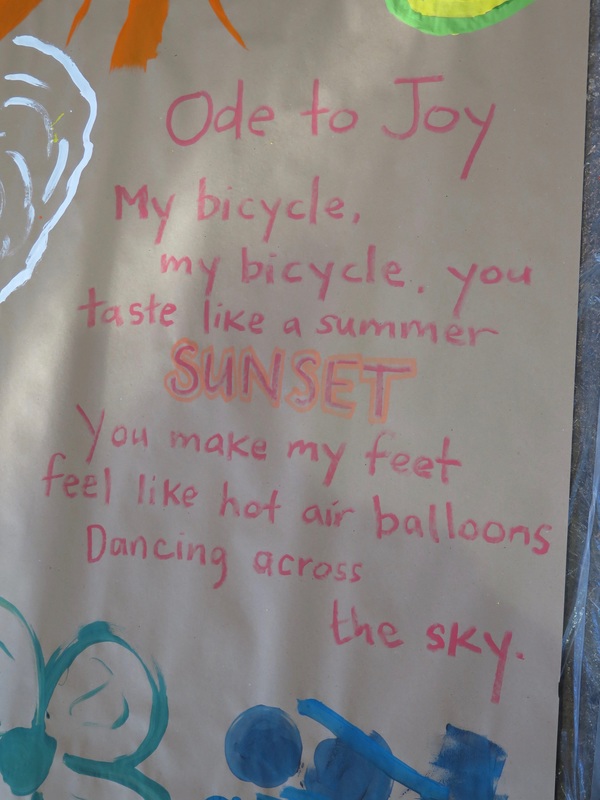 Ode to Joy
My bicycle,
my bicycle, you
taste like a summer
SUNSET
You make my feet
feel like hot air balloons
Dancing across
the sky.